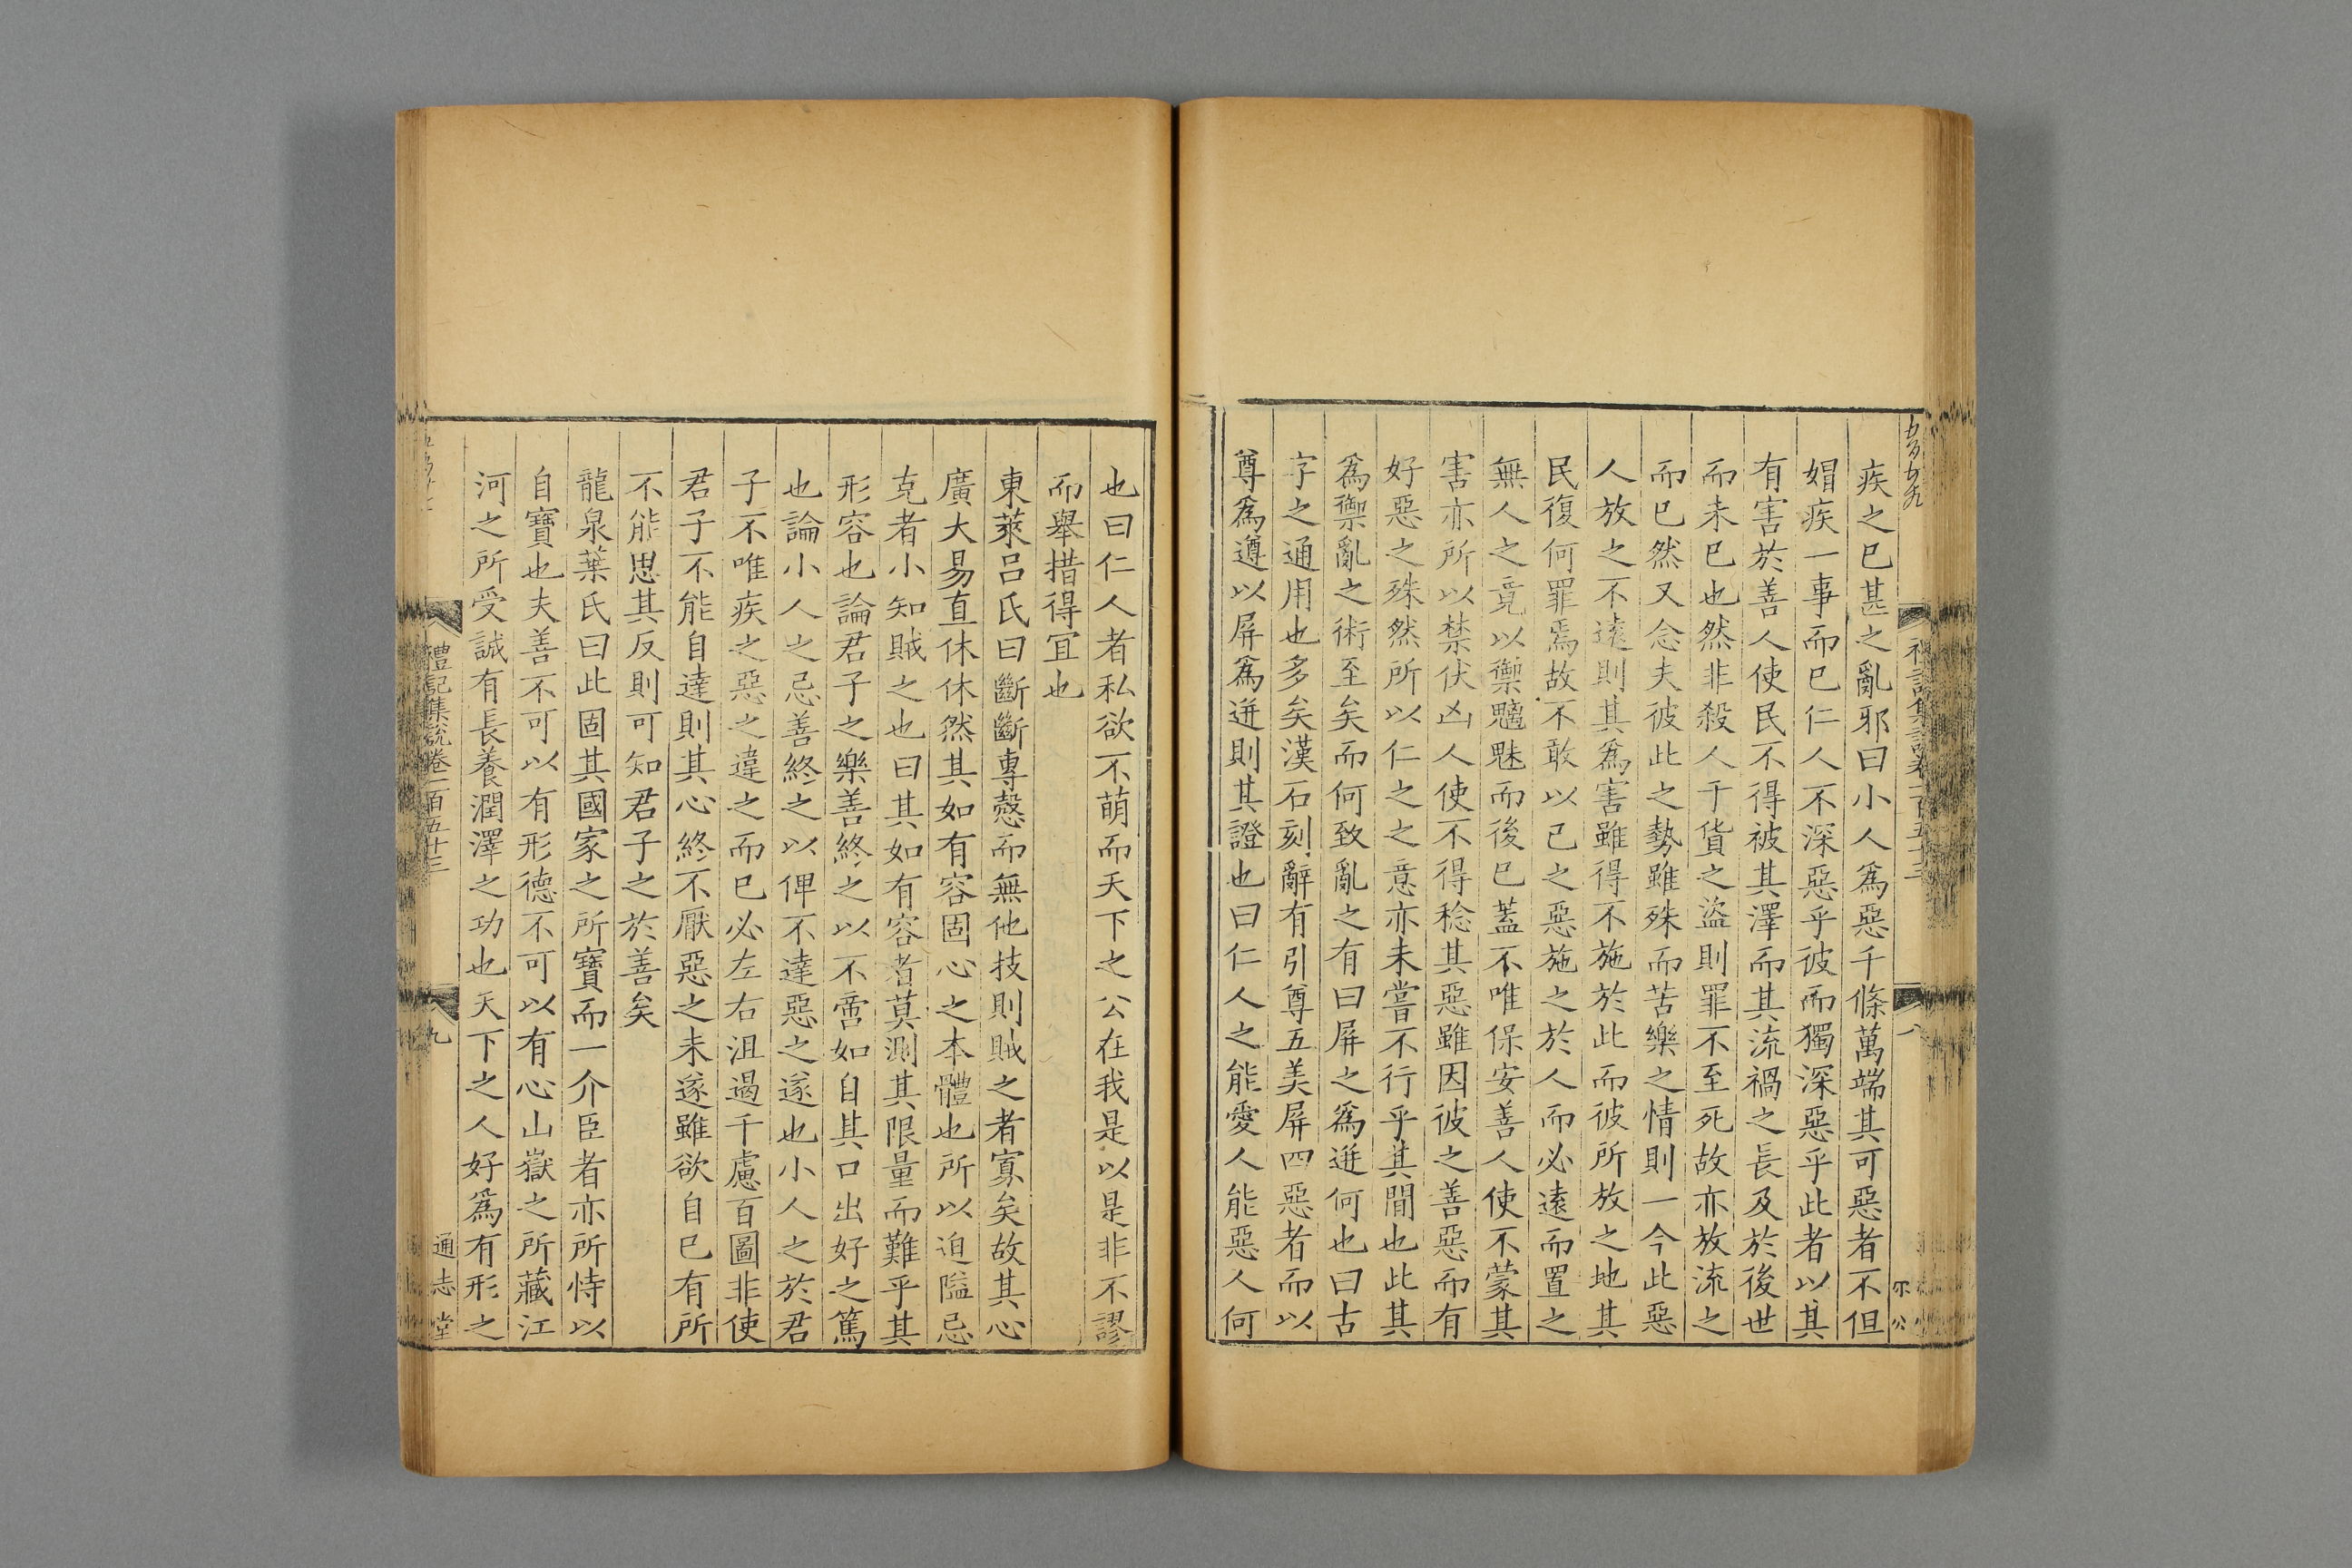 疾之已甚之亂邪曰小人爲惡千條萬端其可惡者不但
媢疾一事而已仁人不深惡乎彼而獨深惡乎此者以其
有害於善人使民不得被其澤而其流禍之長及於後世
而未已也然非殺人于貨之盜則罪不至死故亦放流之
而已然又念夫彼此之勢雖殊而苦樂之情則一今此惡
人放之不遠則其爲害雖得不施於此而彼所放之地其
民復何罪焉故不敢以己之惡施之於人而必遠而置之
無人之竟以禦魑魅而後已蓋不唯保安善人使不蒙其
害亦所以禁伏凶人使不得稔其惡雖因彼之善惡而有
好惡之殊然所以仁之之意亦未嘗不行乎其閒也此其
爲禦亂之術至矣而何致亂之有曰屏之爲迸何也曰古
字之通用也多矣漢石刻辭有引尊五美屏四惡者而以
尊爲遵以屏爲迸則其證也曰仁人之能愛人能惡人何
也曰仁人者私欲不萌而天下之公在我是以是非不謬
而舉措得宜也
東萊呂氏曰斷斷專慤而無他技則賊之者寡矣故其心
廣大易直休休然其如有容固心之本體也所以迫隘忌
克者小知賊之也曰其如有容者莫測其限量而難乎其
形容也論君子之樂善終之以不啻如自其口出好之篤
也論小人之忌善終之以俾不達惡之遂也小人之於君
子不唯疾之惡之違之而已必左右沮遏千慮百圖非使
君子不能自達則其心終不厭惡之未遂雖欲自已有所
不能思其反則可知君子之於善矣
龍泉葉氏曰此固其國家之所寶而一介臣者亦所恃以
自寶也夫善不可以有形德不可以有心山嶽之所藏江
河之所受誠有長養潤澤之功也天下之人好爲有形之
禮記集說卷一百五十三
九
通志堂